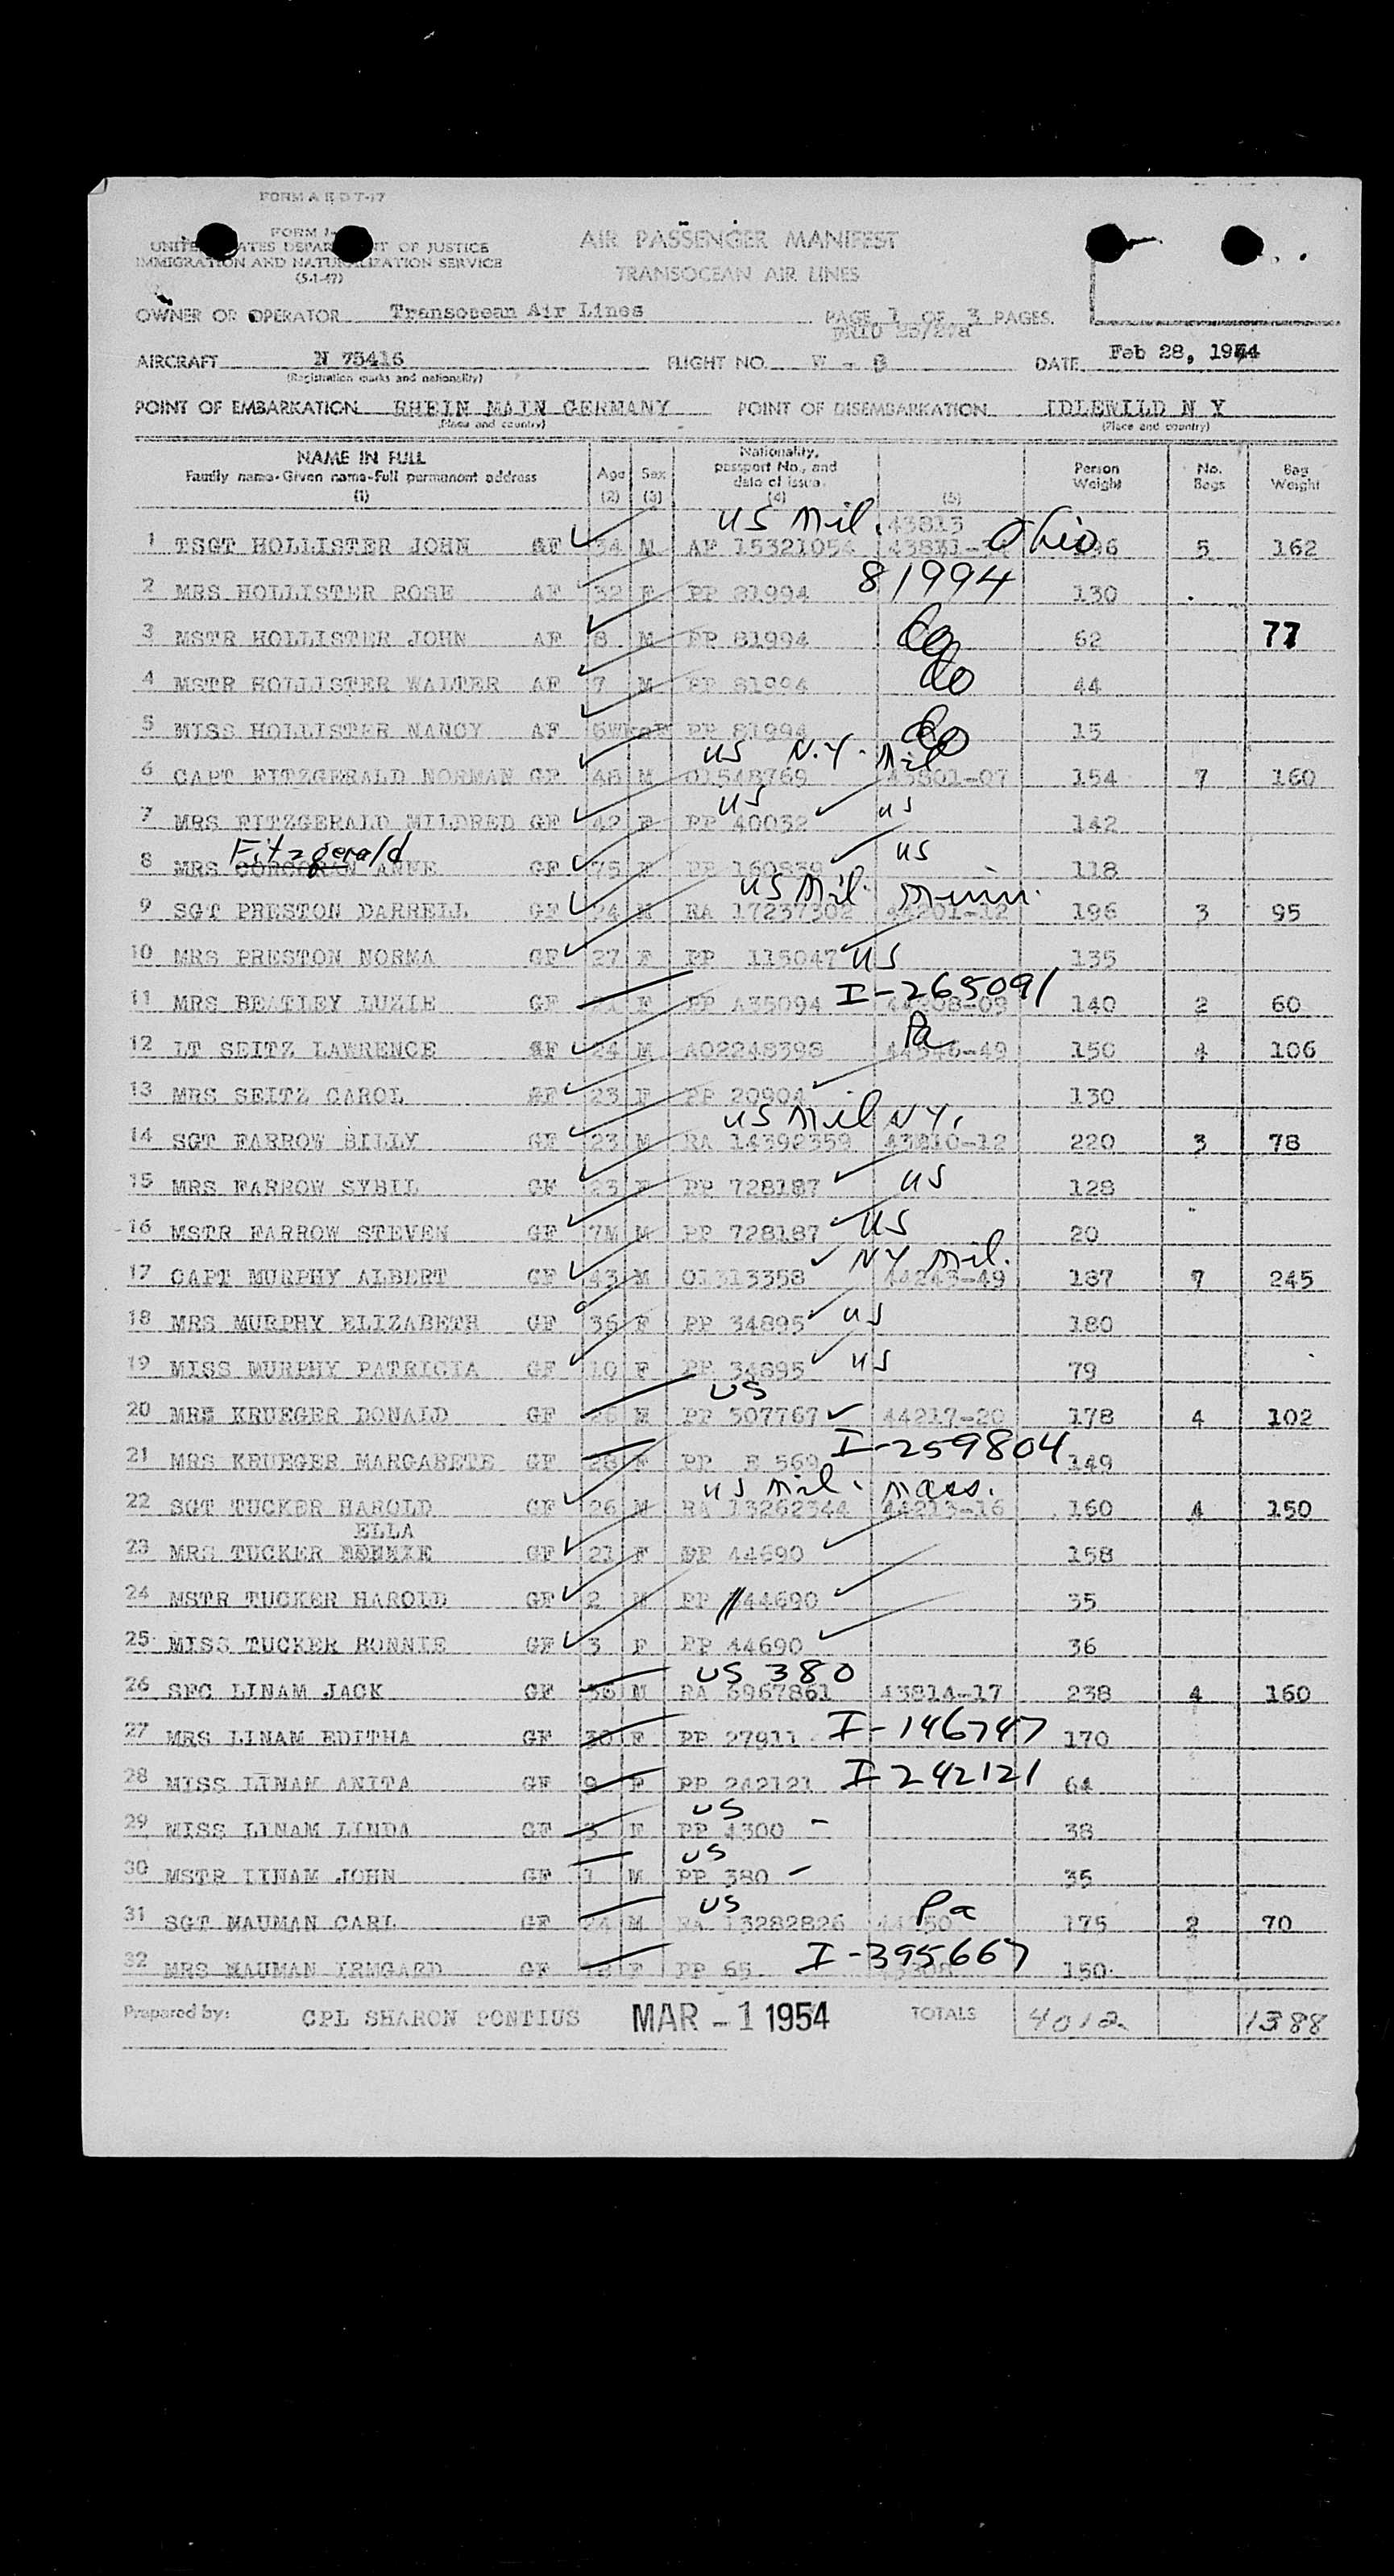 FORM A E D T-17
FORM I-
UNITED STATES DEPARTMENT OF JUSTICE
IMMIGRATION AND NATURALIZATION SERVICE
(5-1-47)
AIR PASSENGER MANIFEST
TRANSOCEAN AIR LINES
OWNER OR OPERATOR Transocean Air Lines PAGE 1 OF 3 PAGES.
AIRCRAFT N 75416 FLIGHT NO. DATE Feb 28, 1954
(Registration marks and nationality)
POINT OF EMBARKATION RHEIN MAIN GERMANY POINT OF DISEMBARKATION IDLEWILD N Y
(Place and country) (Place and country)
NAME IN FULL Age Sex Nationality, passport No., and date of issue. Person Weight No. Bags Bag Weight
Family name-Given name-Full permanent address
(1) (2) (3) (4) (5)
US Mil. 43813 Ohio
1 TSGT HOLLISTER JOHN AF 34 M AF 15321054 5 162
2 MRS HOLLISTER ROSE AF 32 F PP 81994 81994 130
3 MSTR HOLLISTER JOHN AF 8 M PP 81994 do 62 77
4 MSTR HOLLISTER WALTER AF 7 M PP 81994 do 44
5 MISS HOLLISTER NANCY AF 6Wks F PP 81994 do 15
US N.Y. Mil
6 CAPT FITZGERALD NORMAN GF 48 M 01548769 43801-07 154 7 160
US
7 MRS FITZGERALD MILDRED GF 42 F PP 40032 US 142
Fitzgerald
8 MRS CORCORAN ANNE GF 75 F PP 160839 US 118
US Mil. Minn.
9 SGT PRESTON DARRELL GF 24 M RA 17237302 44201-12 196 3 95
10 MRS PRESTON NORMA GF 27 F PP 115047 US 135
I-265091
11 MRS BEATLEY LUZIE GF 21 F PP A35094 44208-09 140 2 60
Pa
12 LT SEITZ LAWRENCE GF 24 M AO2248398 44546-49 150 4 106
13 MRS SEITZ CAROL GF 23 F PP 20904 130
US Mil N Y.
14 SGT FARROW BILLY GF 23 M RA 14392359 43810-12 220 3 78
15 MRS FARROW SYBIL GF 23 F PP 728187 US 128
16 MSTR FARROW STEVEN GF 7M M PP 728187 US 20
NY Mil.
17 CAPT MURPHY ALBERT GF 43 M 01313358 44243-49 187 7 245
18 MRS MURPHY ELIZABETH GF 36 F PP 34895 US 180
19 MISS MURPHY PATRICIA GF 10 F PP 34895 US 79
US
20 MR KRUEGER DONALD GF 26 M PP 507767 44217-20 178 4 102
21 MRS KRUEGER MARGARETE GF 28 F PP E 569 I-259804 149
US Mil. Mass.
22 SGT TUCKER HAROLD GF 26 M RA 13262344 44213-16 160 4 150
ELLA
23 MRS TUCKER BONNIE GF 21 F PP 44690 158
24 MSTR TUCKER HAROLD GF 2 M PP 44690 35
25 MISS TUCKER BONNIE GF 3 F PP 44690 36
US 380
26 SFC LINAM JACK GF 36 M RA 6967861 43814-17 238 4 160
27 MRS LINAM EDITHA GF 30 F PP 27911 I-146747 170
28 MISS LINAM ANITA GF 9 F PP 242121 I-242121 64
US
29 MISS LINAM LINDA GF 3 F PP 4300 - 38
US
30 MSTR LINAM JOHN GF 1 M PP 380 - 35
US Pa
31 SGT MAUMAN CARL GF 24 M RA 13282826 175 2 70
32 MRS MAUMAN IRMGARD GF F PP 65 I-395667 150
Prepared by: CPL SHARON PONTIUS MAR -1 1954 TOTALS 4012 1388